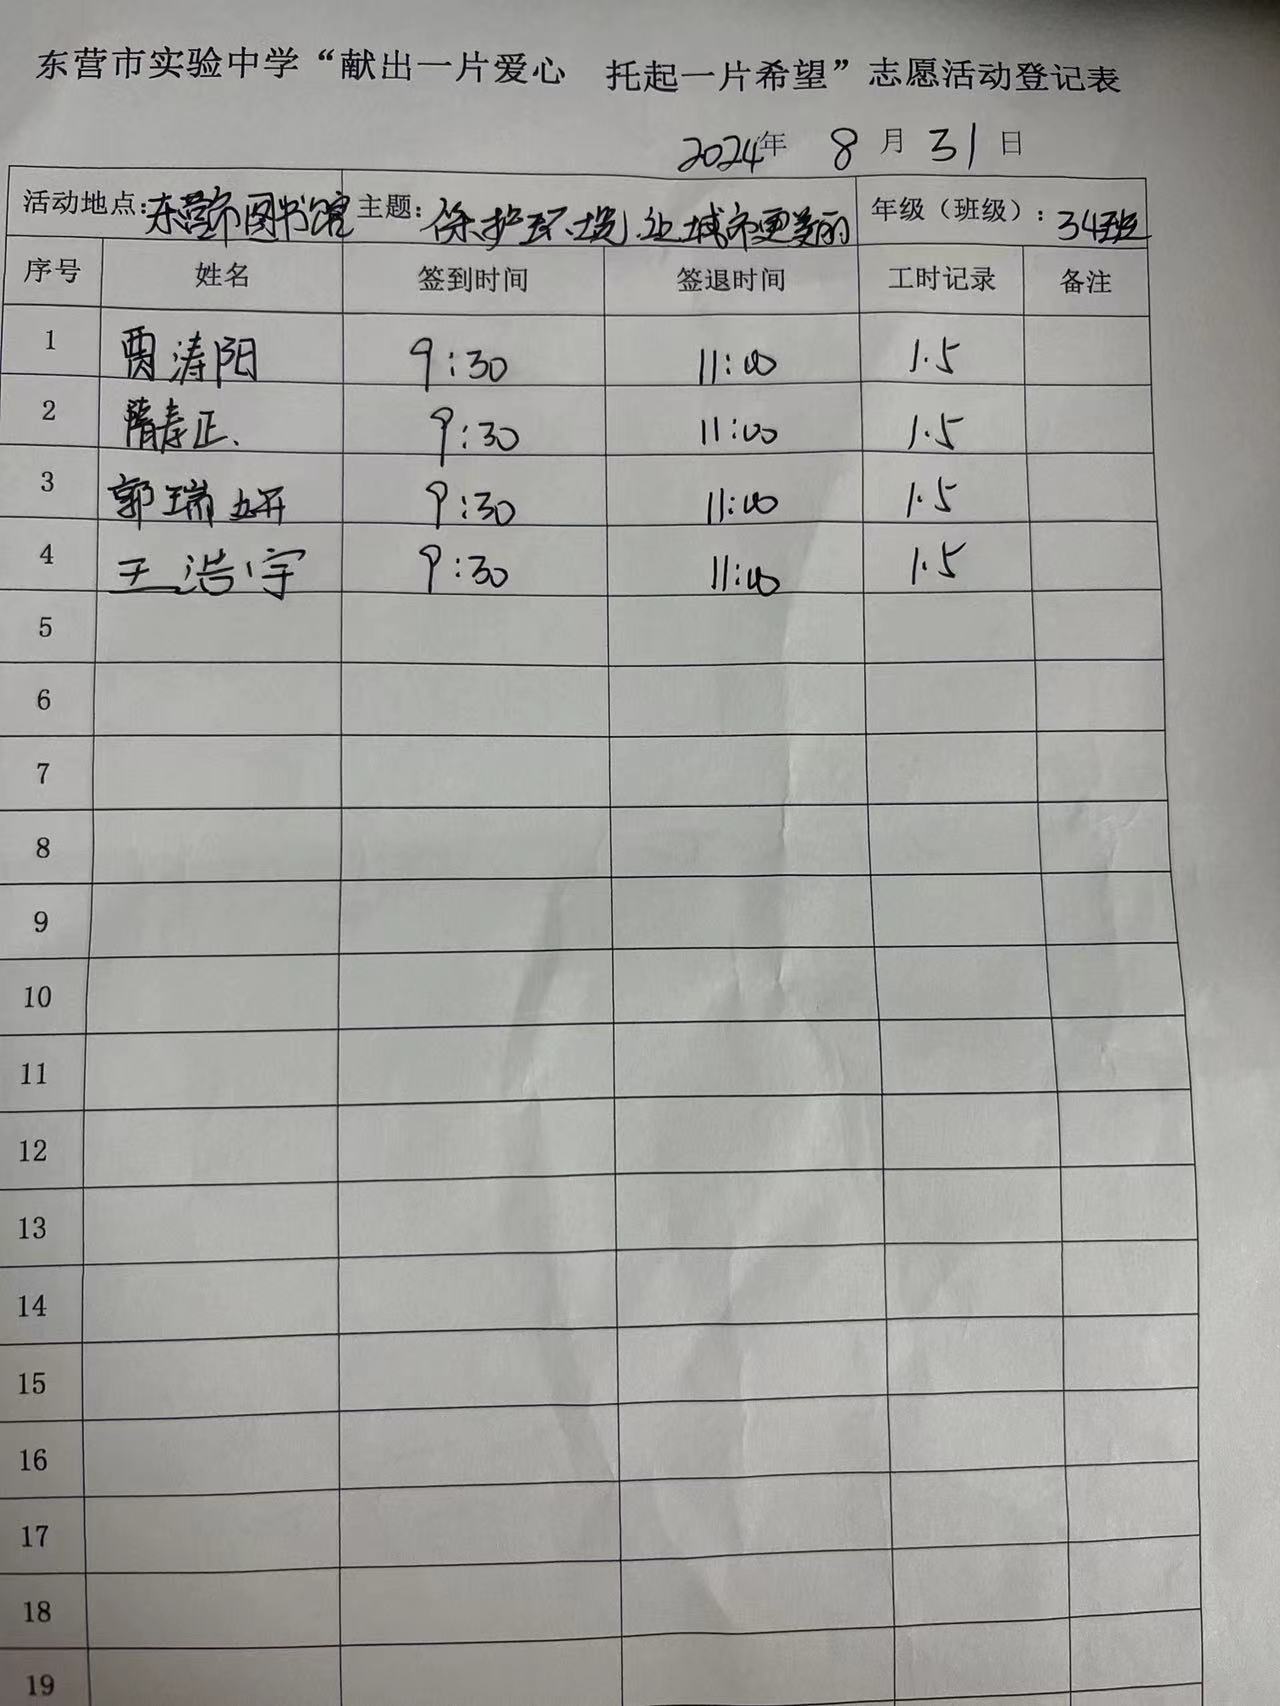 东营市实验中学“献出一片爱心 托起一片希望”志愿活动登记表
2024年 8 月 31 日
活动地点：东营市图书馆 主题：保护环境，让城市更美丽 年级（班级）：34班
序号 姓名 签到时间 签退时间 工时记录 备注
1 贾涛阳 9:30 11:00 1.5
2 隋寿正. 9:30 11:00 1.5
3 郭瑞妍 9:30 11:00 1.5
4 王浩宇 9:30 11:00 1.5
5
6
7
8
9
10
11
12
13
14
15
16
17
18
19